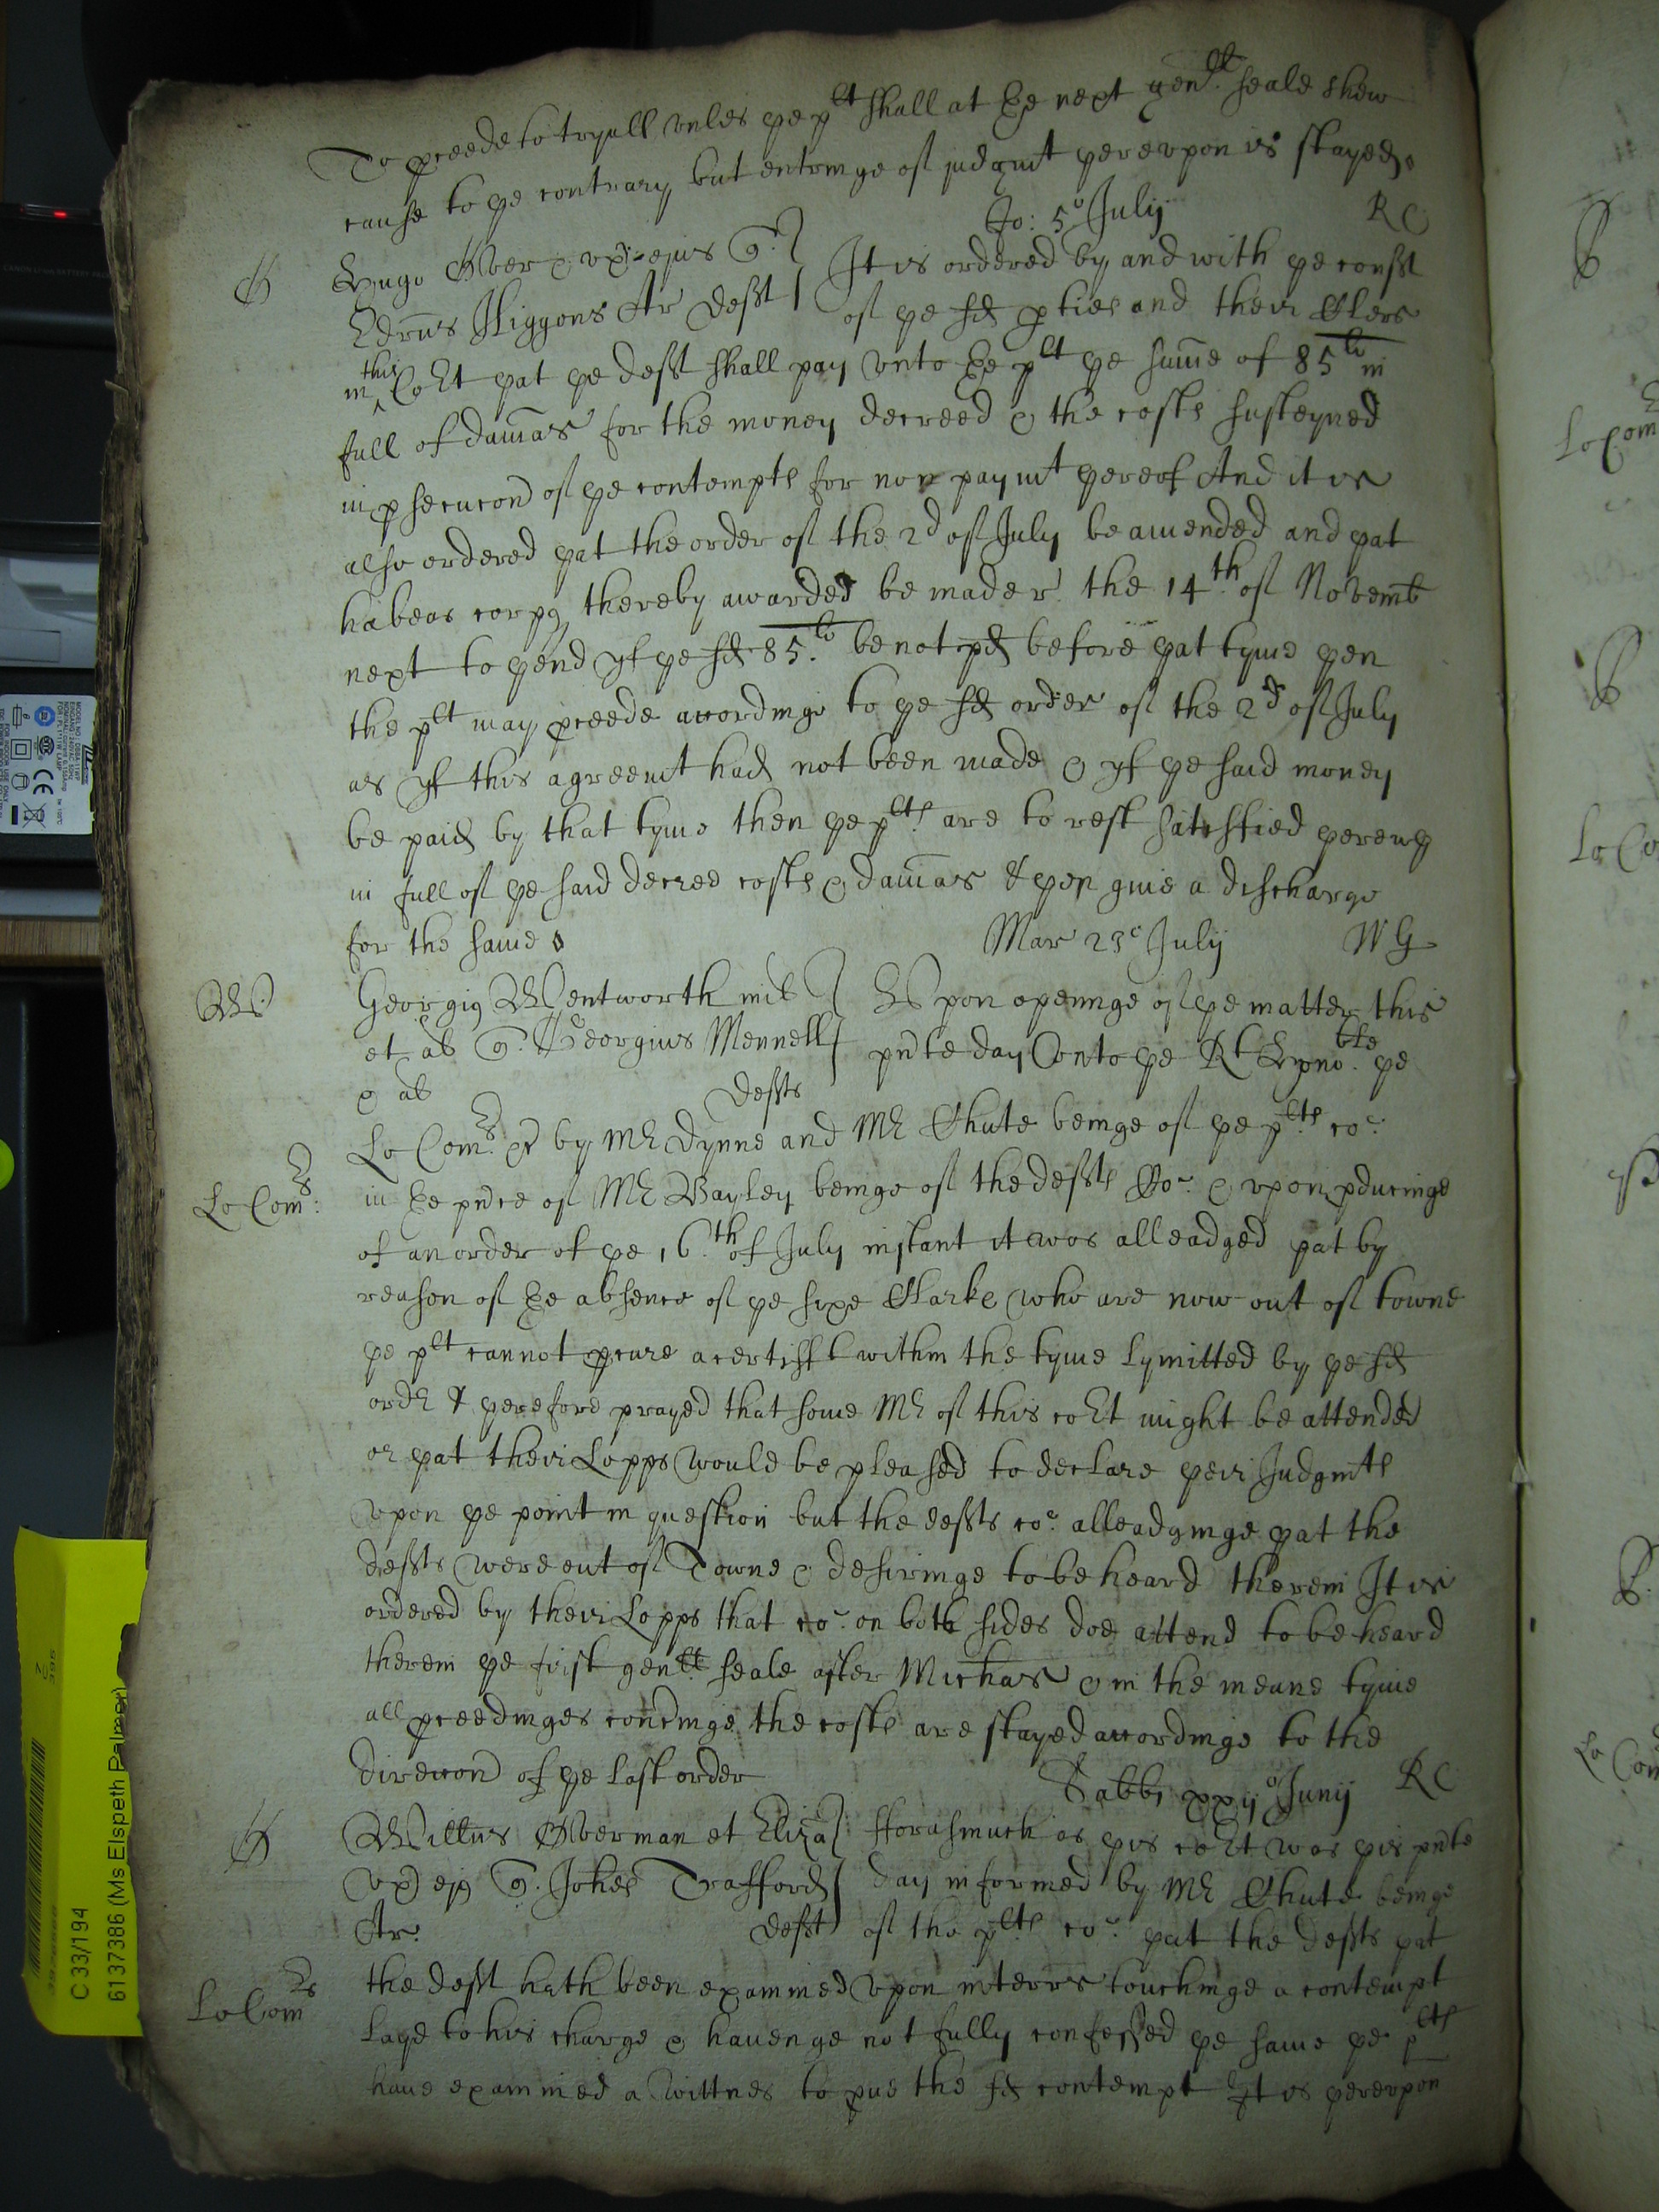 To pceede to tryall vnles ye plt shall at ye next genll seale shew
cause to ye contrary but entringe of judgmt yerevpon is stayed.
Jo: 5o July RC
O Hugo Over & vx eius q. It is ordered by and with ye consst
Edrus Higgons Ar defft of ye sd pties and their Clers
in this Cort yat ye defft shall pay vnto ye plt ye sume of 85li in
full of damas for the money decreed & the costs susteyned
in psecucon of ye contempts for non paymt yereof And it is
also ordered yat the order of the 2d of July be amended and yat
habeas corps thereby awarded be made r the 14th of Novemb
next to yend yf ye sd 85li be not pd before yat tyme yen
the plt may pceede accordinge to ye sd order of the 2d of July
as yf this agreemt had not been made & yf ye said money
be paid by that tyme then ye plts are to rest satisfied yerewth
in full of ye said decree costs & damas & yen giue a discharge
for the same Mar 23o July WG
W Georgius Wentworth mil Vpon openinge of ye matter this
et al q. Georgius Mennell pnte day vnto ye Rt Hono:ble ye
& al deffts
Lo Comrs by Mr Dynne and Mr Chute beinge of ye plts co:
Lo Comrs: in ye pnce of Mr Bayley beinge of the deffts Co: & vpon pducinge
of an order of ye 16th of July instant it was alleadged yat by
reason of ye absence of ye sixe Clarks who are now out of towne
ye plt cannot pcure a certifft within the tyme lymitted by ye sd
ordr & yerefore prayed that some Mr of this cort might be attended
or yat their Lopps would be pleased to declare yeir Judgmts
vpon ye point in question but the deffts co: alleadginge yat the
deffts were out of Towne & desiringe to be heard therein It is
ordered by their Lopps that co: on both sides doe attend to be heard
therein ye first genll seale after Michas & in the meane tyme
all pceedinges concninge the costs are stayed accordinge to the
direccon of ye last order Sabbi xxijo Junij RC
O Willus Overman et Eliza fforasmuch as yis cort was yis pnte
vx ejs q. Johes Trafford day informed by Mr Chute beinge
Ar. defft of the plts co: yat the deffts yat
the defft hath been examined vpon interrs touchinge a contempt
Lo Comrs laye to his charge & hauenge not fully confessed ye same ye plts
haue examined a wittnes to pue the sd contempt It is yerevpon
C 33/194
6137386 (Ms Elspeth Palmer)